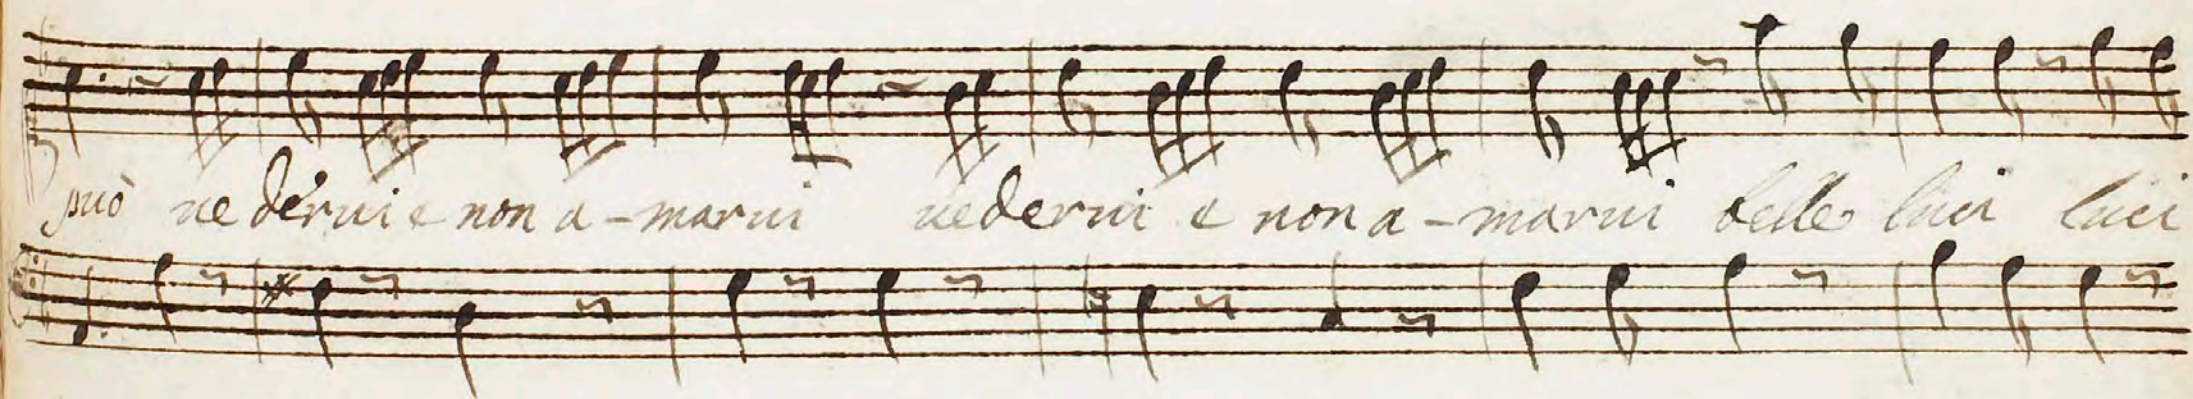 può uederui e non a-marui uederui e non a-marui belle luci luci